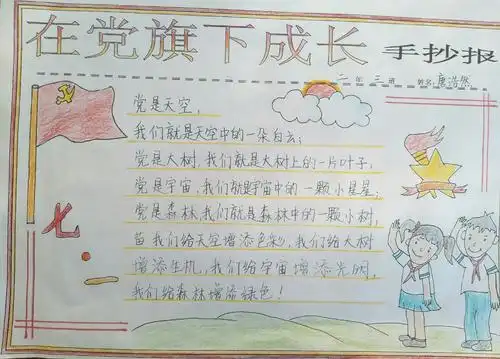 在党旗下成长 手抄报
二年三班 姓名:唐浩然
党是天空,
我们就是天空中的一朵白云;
党是大树,我们就是大树上的一片叶子,
党是宇宙,我们就是宇宙中的一颗小星星;
党是森林,我们就是森林中的一颗小树,
苗我们给天空增添色彩,我们给大树
增添生机,我们给宇宙增添光阴,
我们给森林增添绿色!
七.一